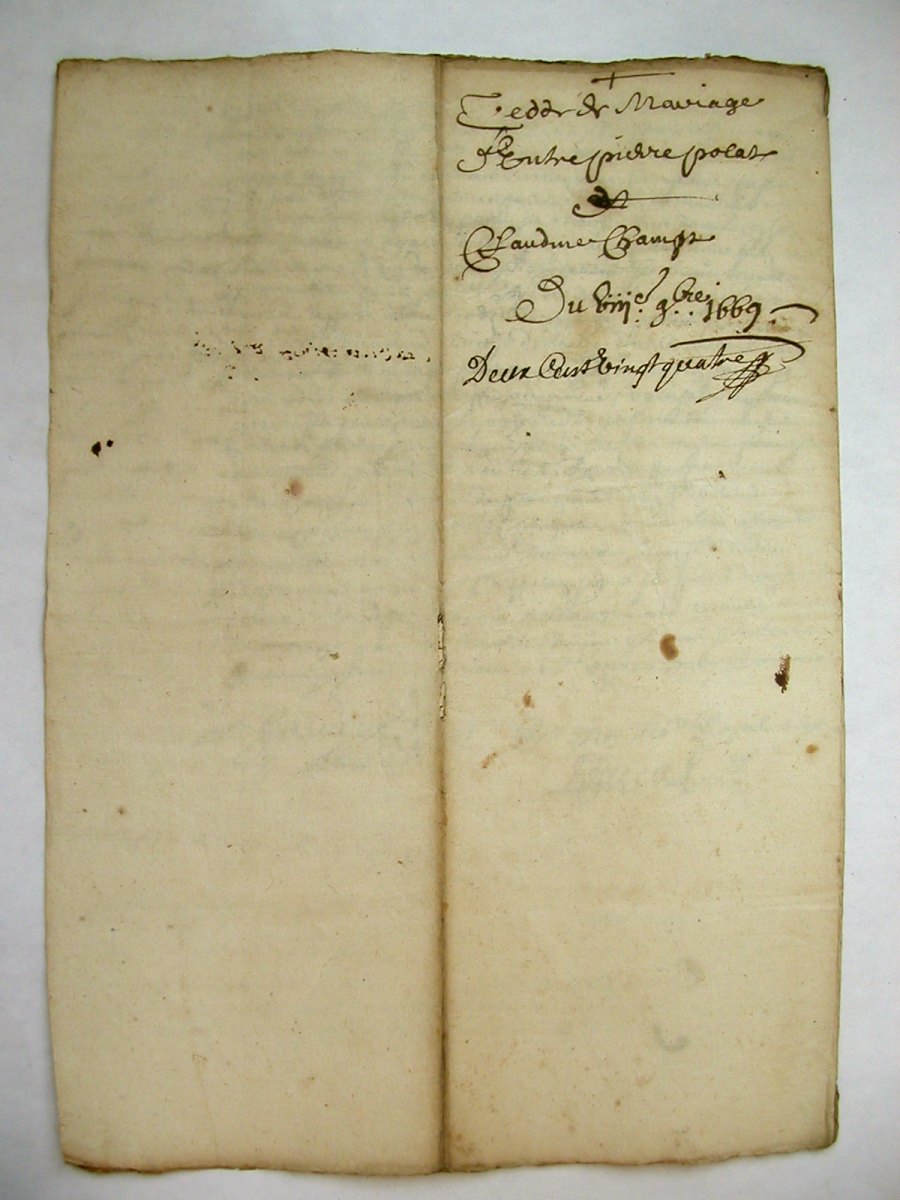 Cedde de Mariage
d'Entre pierre polat
Et
Claudine Champt
Du viije 9bre 1669.
Deux Cent vingt quatre